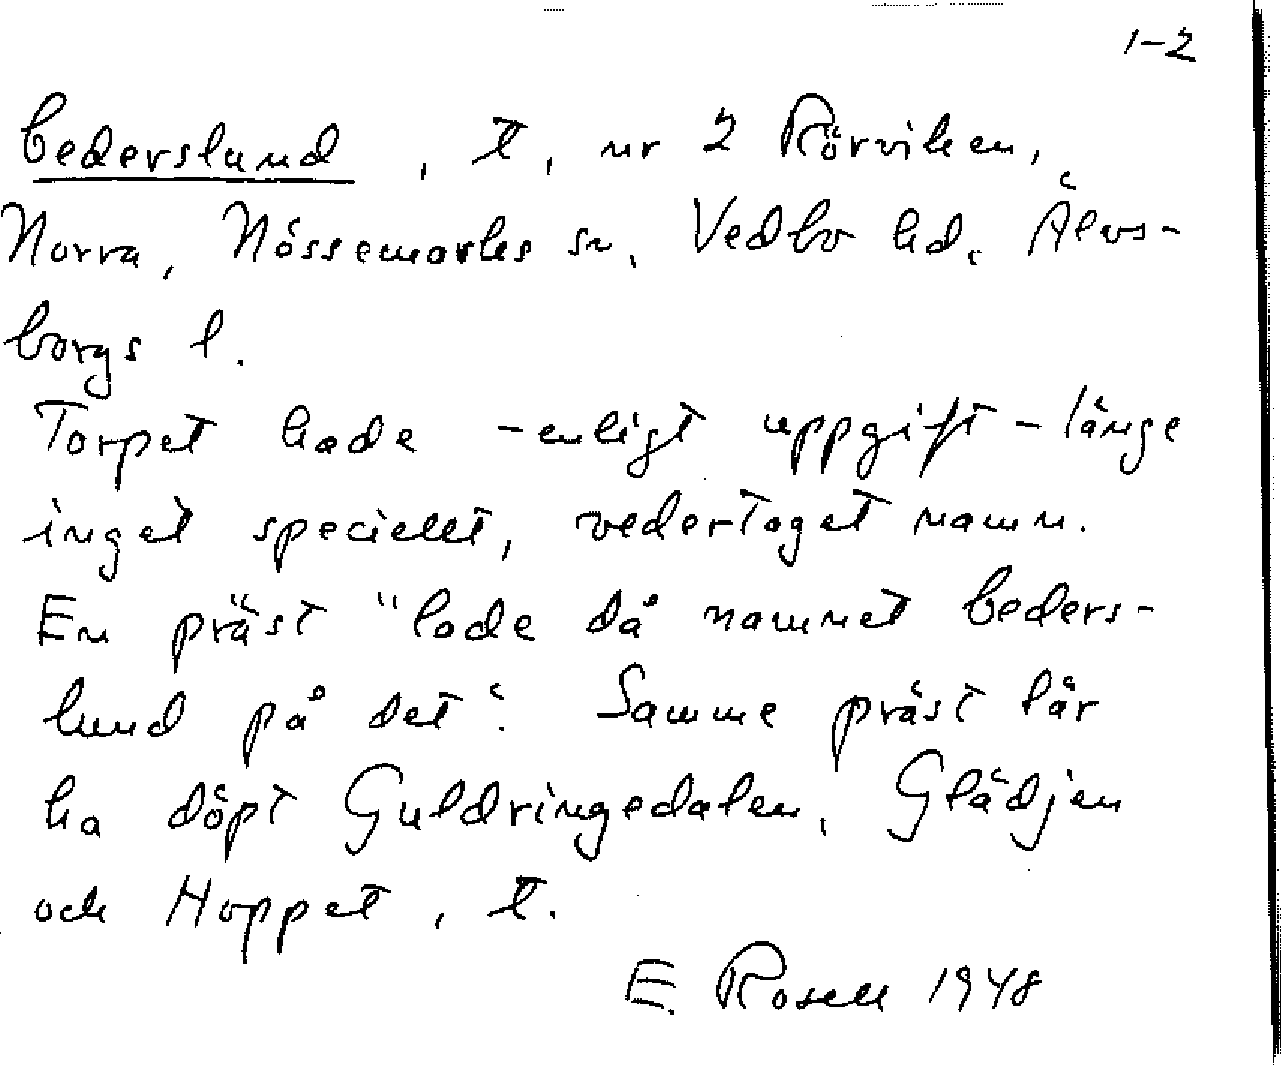 1-2
Cederslund, t, nr 2 Rörviken,
Norra, Nössemarks sn, Vedbo hd. Älvs-
borgs l.
Torpet hade - enligt uppgift - länge
inget speciellt, vedertaget namn.
En präst "lade då namnet Ceders-
lund på det". Samme präst lär
ha döpt Guldringedalen, Glädjen
och Hoppet, t.
E. Rosell 1948